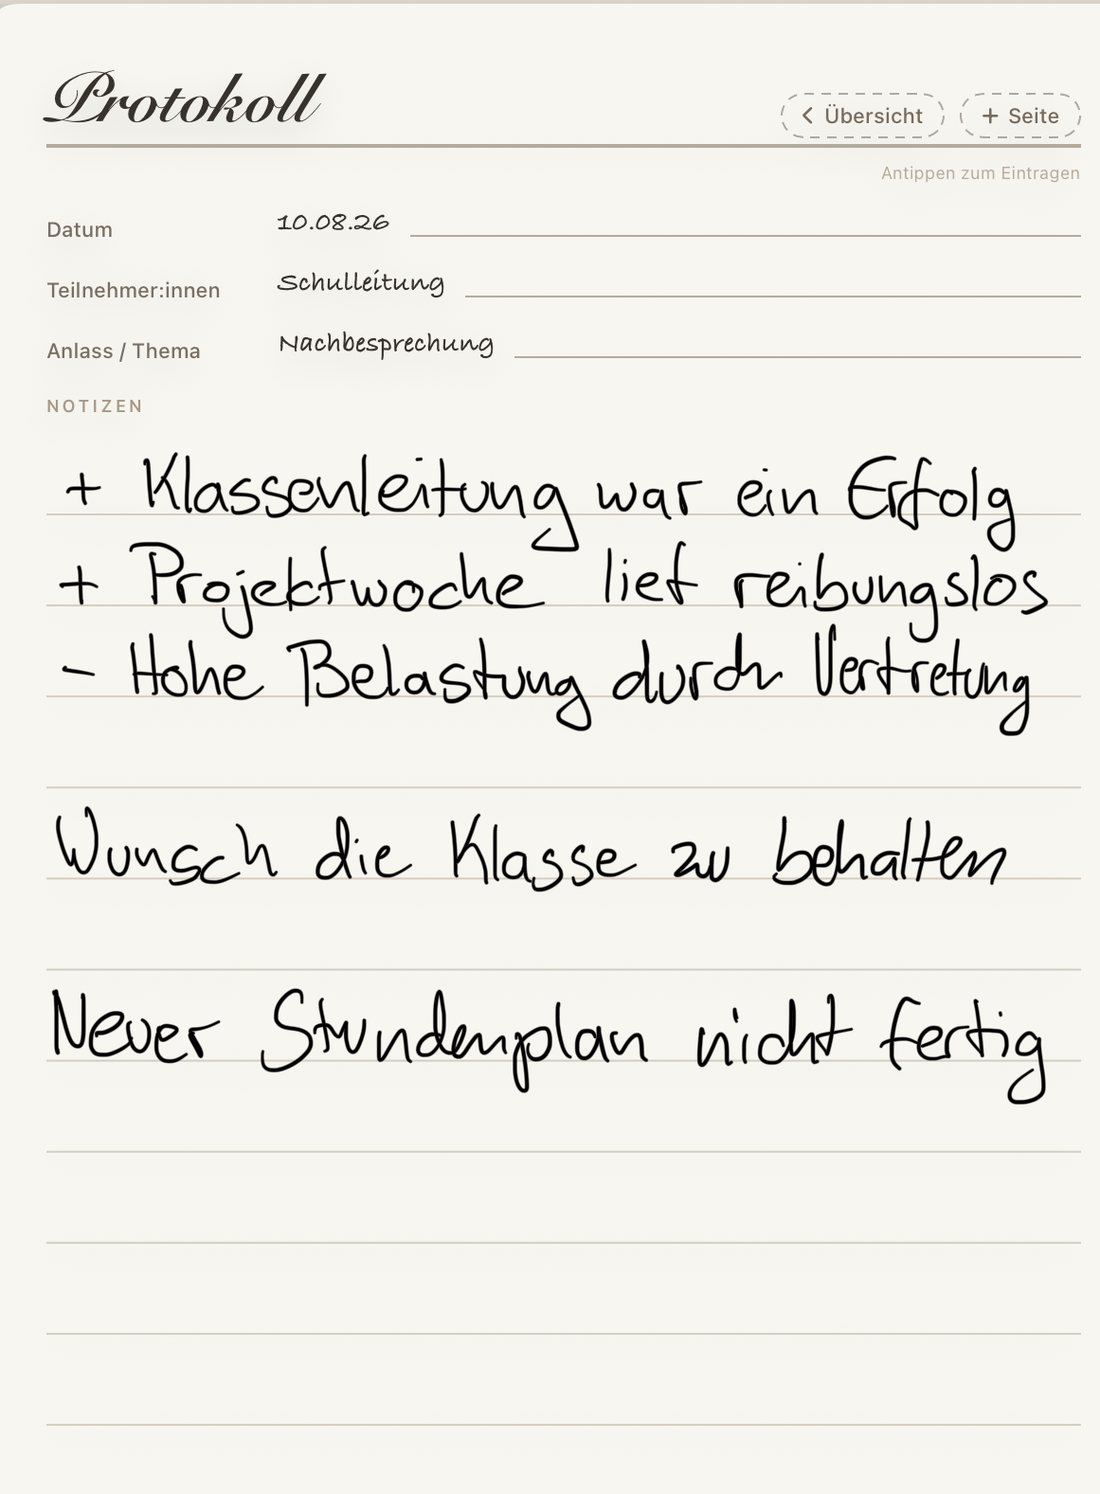 Protokoll
< Übersicht
+ Seite
Antippen zum Eintragen
Datum 10.08.26
Teilnehmer:innen Schulleitung
Anlass / Thema Nachbesprechung
NOTIZEN
+ Klassenleitung war ein Erfolg
+ Projektwoche lief reibungslos
- Hohe Belastung durch Vertretung
Wunsch die Klasse zu behalten
Neuer Stundenplan nicht fertig